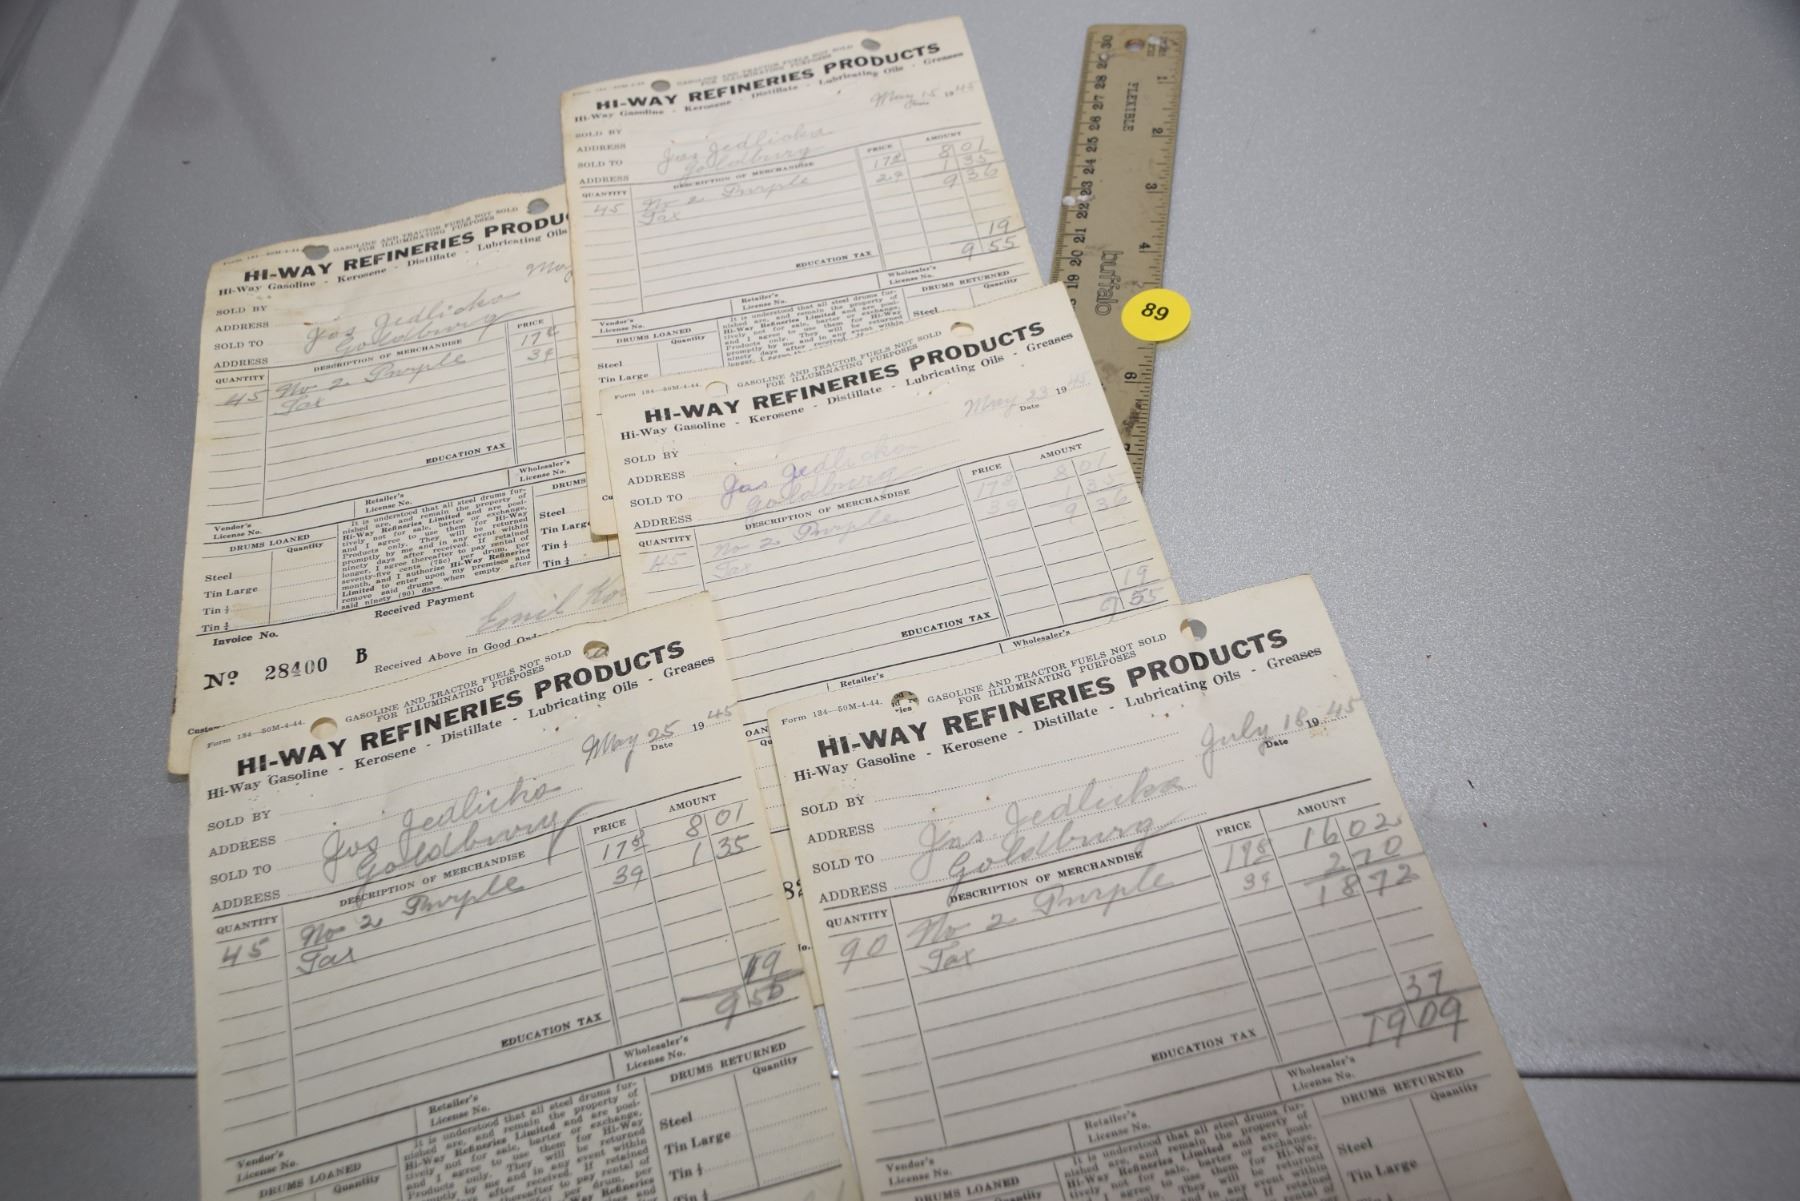 GASOLINE AND TRACTOR FUELS NOT SOLD
FOR ILLUMINATING PURPOSES
HI-WAY REFINERIES PRODUCTS
Hi-Way Gasoline - Kerosene - Distillate - Lubricating Oils - Greases
May 15 1945
Date
SOLD BY
ADDRESS
SOLD TO Jas Jedlicka
ADDRESS Goldburg
QUANTITY DESCRIPTION OF MERCHANDISE PRICE AMOUNT
45 No 2 Purple 178 8 01
Tax 1 35
9 36
19
EDUCATION TAX 9 55
Wholesaler's
License No.
Retailer's
License No.
DRUMS RETURNED
Quantity
Vendor's
License No.
DRUMS LOANED
Quantity
It is understood that all steel drums fur-
nished are, and remain the property of
Hi-Way Refineries Limited and are posi-
tively not for sale, barter or exchange,
and I agree to use them for Hi-Way
Products only. They will be returned
promptly by me and in any event within
Steel
Steel
Tin Large
Form 134-50M-4-44.
GASOLINE AND TRACTOR FUELS NOT SOLD
FOR ILLUMINATING PURPOSES
HI-WAY REFINERIES PRODU
Hi-Way Gasoline - Kerosene - Distillate - Lubricating Oils
May
SOLD BY
ADDRESS
SOLD TO Jas Jedlicka
ADDRESS Goldburg
QUANTITY DESCRIPTION OF MERCHANDISE PRICE
45 No 2 Purple 178
Tax 3¢
EDUCATION TAX
Wholesaler's
License No.
Retailer's
License No.
DRUMS
Vendor's
License No.
DRUMS LOANED
Quantity
It is understood that all steel drums fur-
nished are, and remain the property of
Hi-Way Refineries Limited and are posi-
tively not for sale, barter or exchange,
and I agree to use them for Hi-Way
Products only. They will be returned
promptly by me and in any event within
ninety days after received. If retained
longer, I agree thereafter to pay rental of
seventy-five cents (75c) per drum, per
month, and I authorize Hi-Way Refineries
Limited to enter upon my premises and
remove said drums when empty after
said ninety (90) days.
Steel
Tin Large
Steel
Tin Large
Received Payment
Emil
Invoice No.
Nº 28400 B
Received Above in Good Ord
Form 134-50M-4-44.
GASOLINE AND TRACTOR FUELS NOT SOLD
FOR ILLUMINATING PURPOSES
HI-WAY REFINERIES PRODUCTS
Hi-Way Gasoline - Kerosene - Distillate - Lubricating Oils - Greases
May 23 1945
Date
SOLD BY
ADDRESS
SOLD TO Jas Jedlicka
ADDRESS Goldburg
QUANTITY DESCRIPTION OF MERCHANDISE PRICE AMOUNT
45 No 2 Purple 178 8 01
Tax 3¢ 1 35
9 36
19
EDUCATION TAX 9 55
Wholesaler's
Retailer's
Form 134-50M-4-44.
GASOLINE AND TRACTOR FUELS NOT SOLD
FOR ILLUMINATING PURPOSES
HI-WAY REFINERIES PRODUCTS
Hi-Way Gasoline - Kerosene - Distillate - Lubricating Oils - Greases
May 25 1945
Date
SOLD BY
ADDRESS
SOLD TO Jas Jedlicka
ADDRESS Goldburg
QUANTITY DESCRIPTION OF MERCHANDISE PRICE AMOUNT
45 No 2 Purple 178 8 01
Tax 3¢ 1 35
19
EDUCATION TAX 9 55
Wholesaler's
License No.
Retailer's
License No.
DRUMS RETURNED
Quantity
Vendor's
License No.
DRUMS LOANED
Quantity
It is understood that all steel drums fur-
nished are, and remain the property of
Hi-Way Refineries Limited and are posi-
tively not for sale, barter or exchange,
and I agree to use them for Hi-Way
Products only. They will be returned
Steel
Tin Large
Form 134-50M-4-44.
GASOLINE AND TRACTOR FUELS NOT SOLD
FOR ILLUMINATING PURPOSES
HI-WAY REFINERIES PRODUCTS
Hi-Way Gasoline - Kerosene - Distillate - Lubricating Oils - Greases
July 18 1945
Date
SOLD BY
ADDRESS
SOLD TO Jas. Jedlicka
ADDRESS Goldburg
QUANTITY DESCRIPTION OF MERCHANDISE PRICE AMOUNT
90 No 2 Purple 178 16 02
Tax 3¢ 2 70
18 72
37
EDUCATION TAX 19 09
Wholesaler's
License No.
Retailer's
License No.
DRUMS RETURNED
Quantity
Vendor's
License No.
DRUMS LOANED
Quantity
It is understood that all steel drums fur-
nished are, and remain the property of
Hi-Way Refineries Limited and are posi-
tively not for sale, barter or exchange,
Steel
Tin Large
FLEXIBLE
buffalo
1 2 3 4 6
30 29 28 27 26 25 24 23 22 21 20 19
89